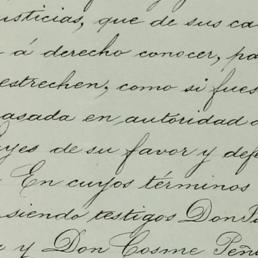 usticias, que de sus ca
á derecho conocer, pa
estrechen, como si fues
asada en autoridad d
yes de su favor y defe
En cuyos términos
siendo testigos Don P
y Don Cosme Peñ